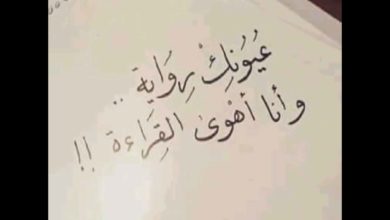 عُيُونكِْ رِوَاية ..
وأنا أهْوىٰ القِرَاءة !!